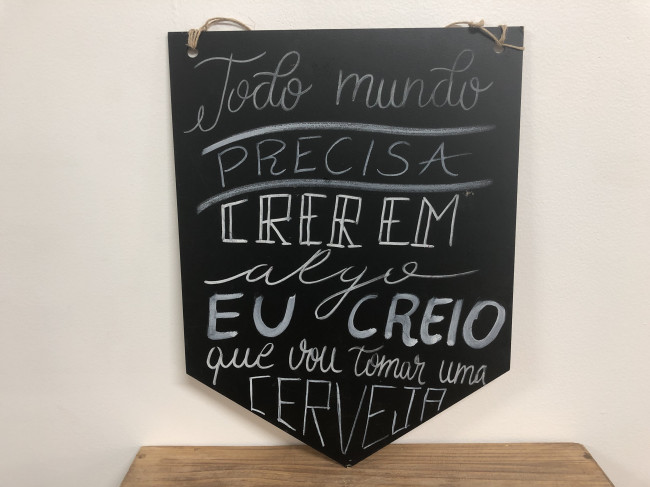 Todo mundo
PRECISA
CRER EM
algo
EU CREIO
que vou tomar uma
CERVEJA